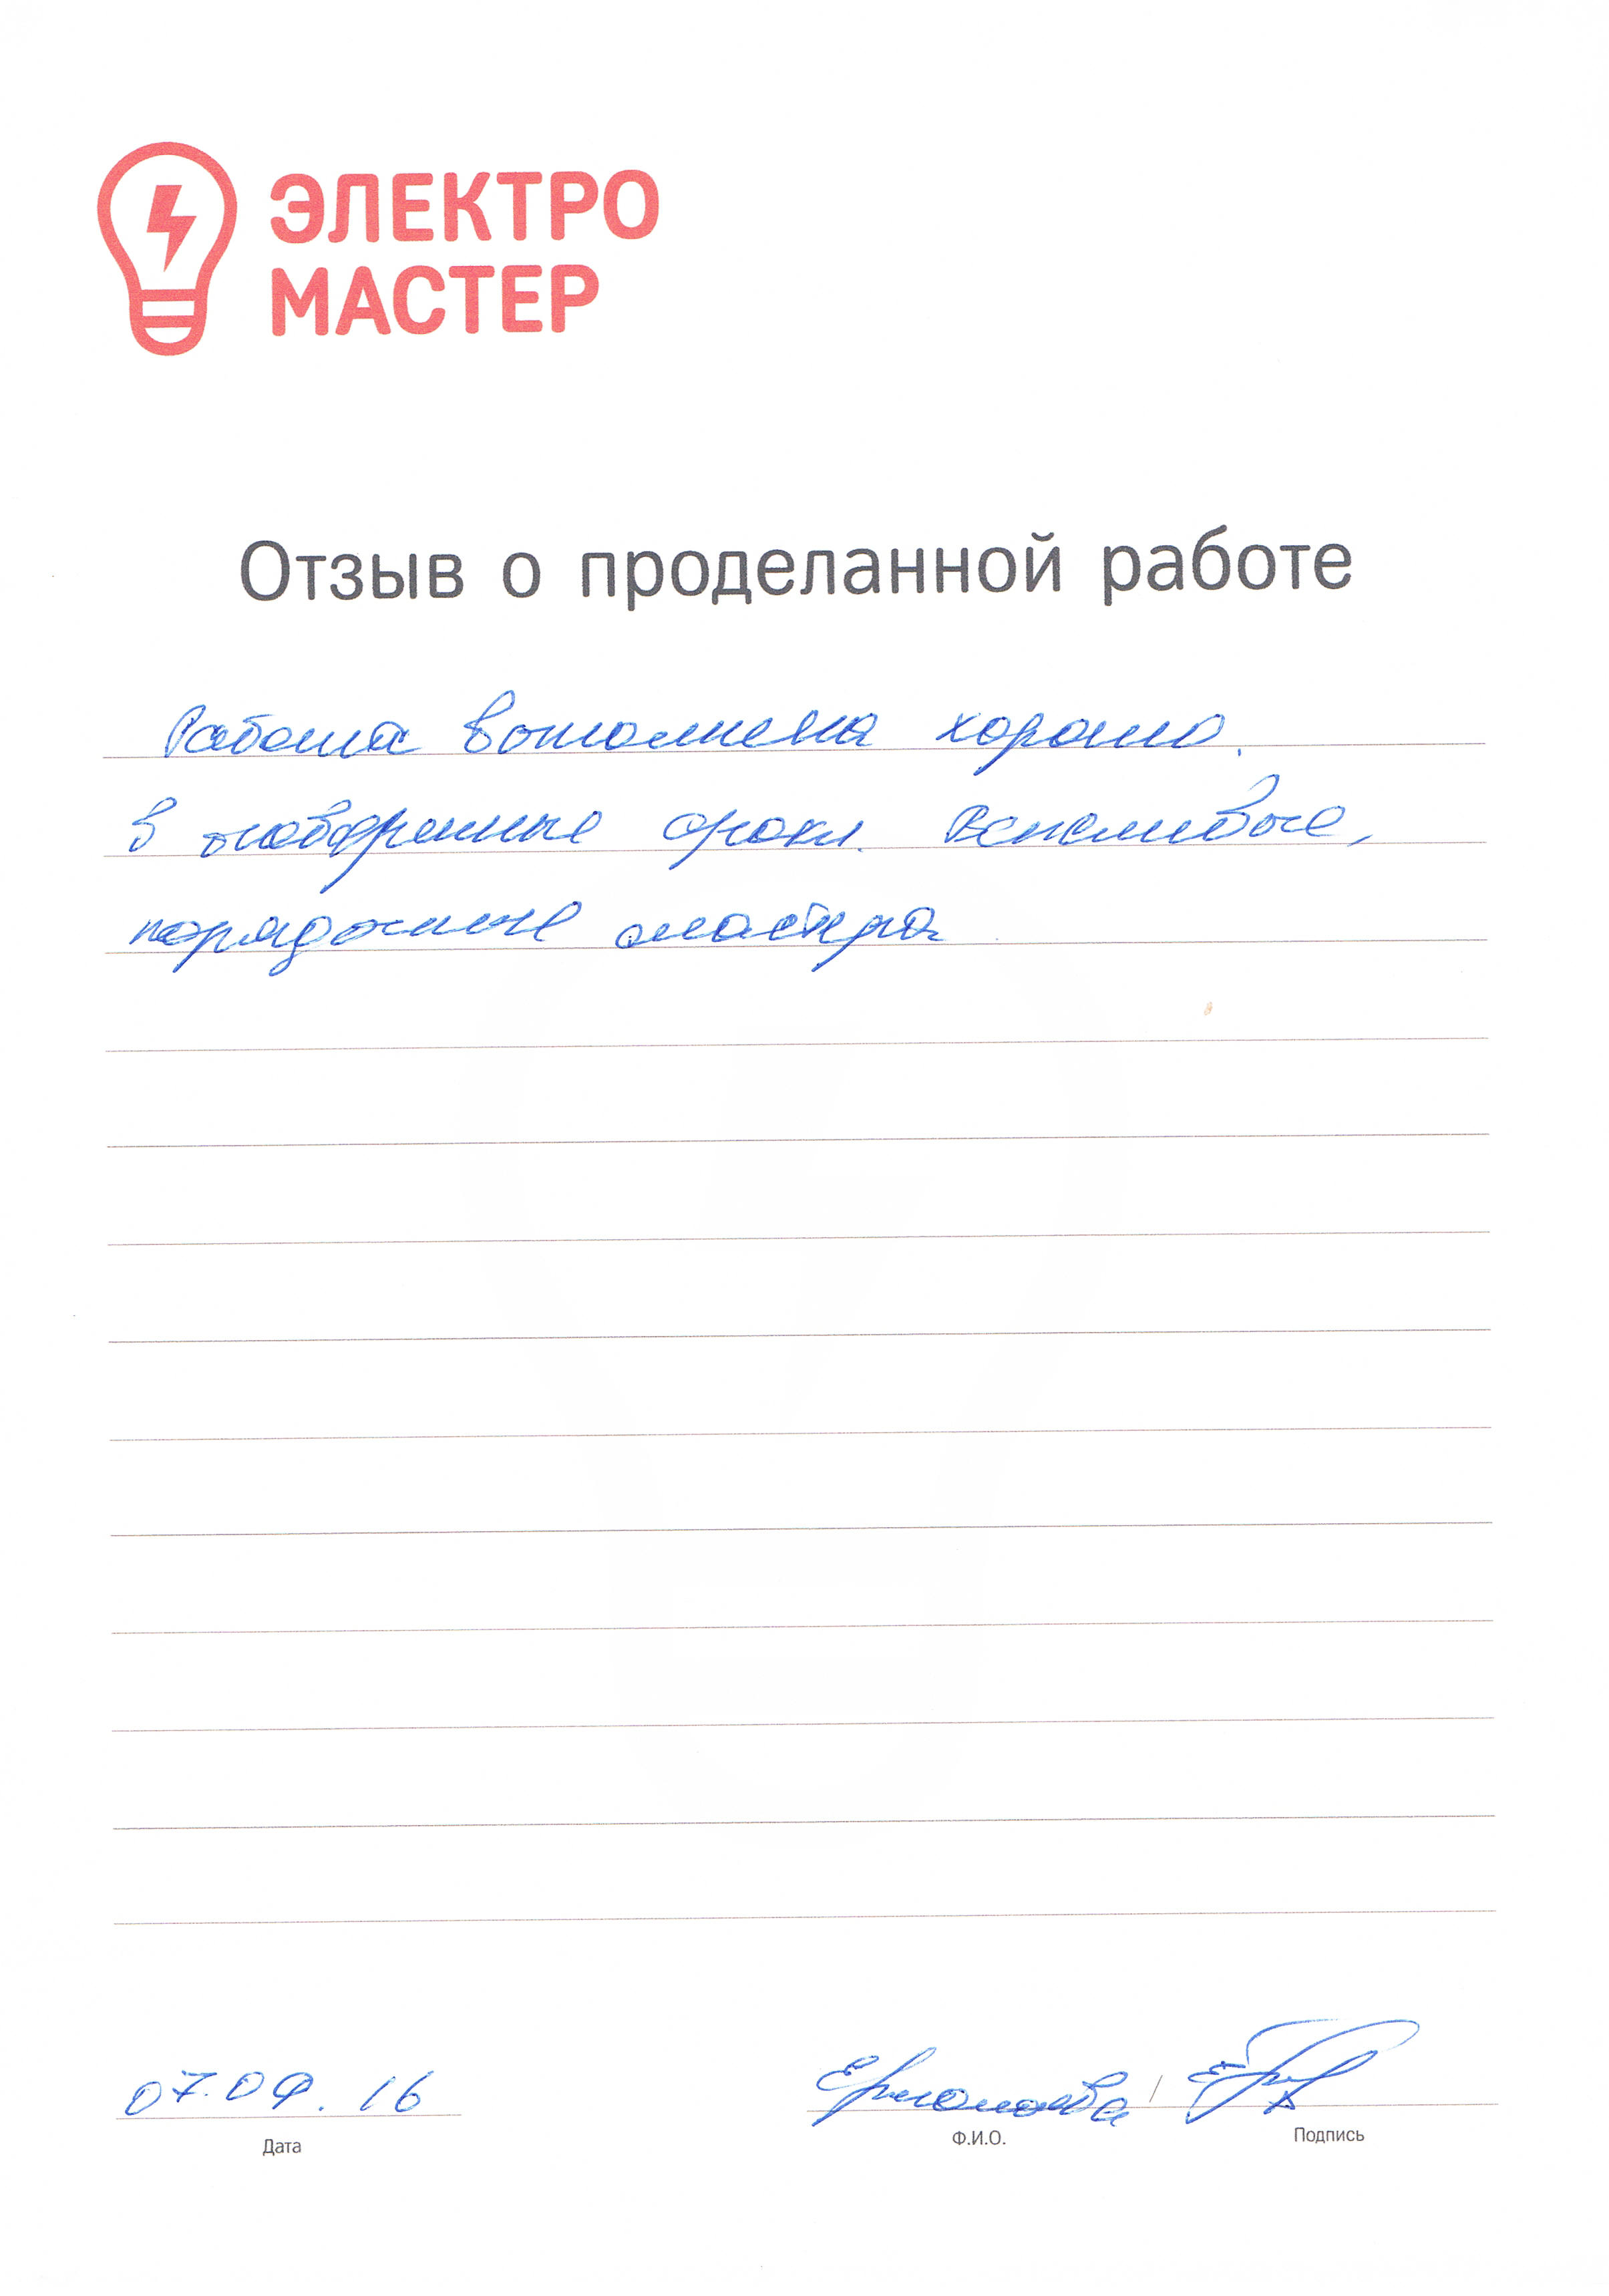 ЭЛЕКТРО
МАСТЕР
Отзыв о проделанной работе
Работа выполнена хорошо.
В сроки. Вежливые,
порядочные мастера
07.09.16
Ермолаева /
Дата
Ф.И.О.
Подпись